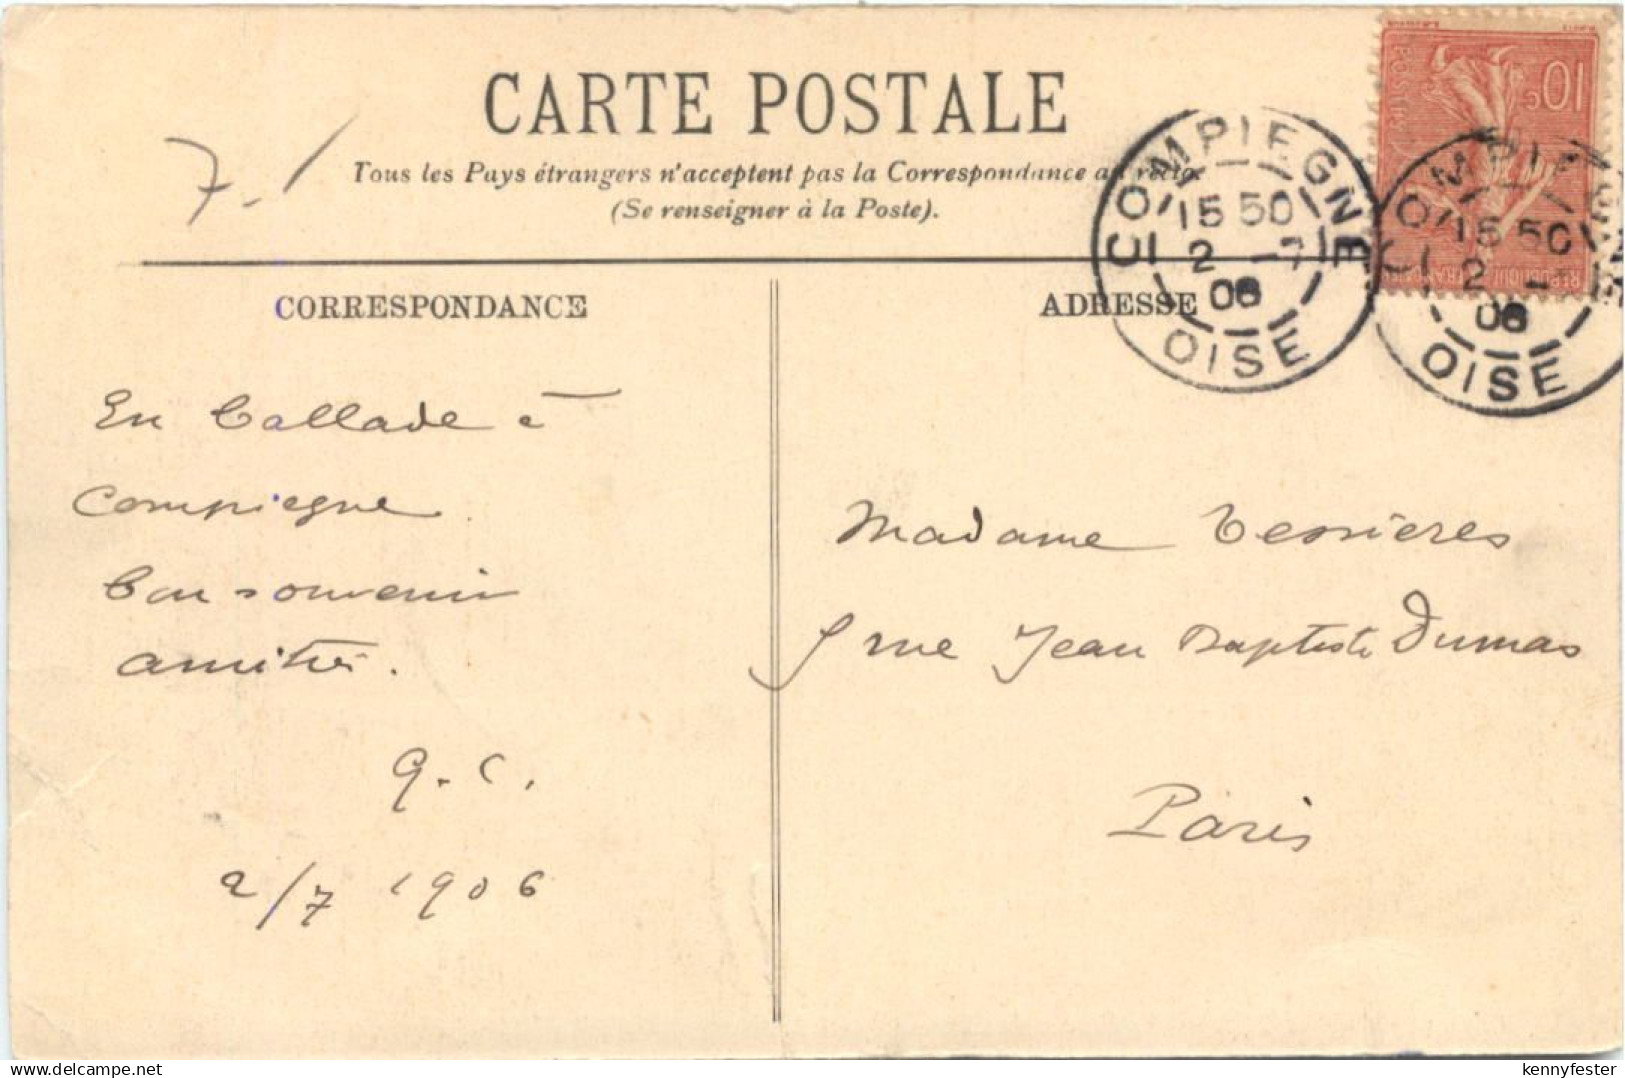 CARTE POSTALE
Tous les Pays étrangers n'acceptent pas la Correspondance au recto.
(Se renseigner à la Poste).
7-1
10c
POSTES
REPUBLIQUE FRANÇAISE
COMPIEGNE
15 50
2 -7
06
OISE
COMPIEGNE
15 50
2 -
06
OISE
CORRESPONDANCE
ADRESSE
En ballade à
Compiegne
bon souvenir
amitiés.
G. C.
2/7 1906
Madame Tessières
5 rue Jean Baptiste Dumas
Paris
kennyfester